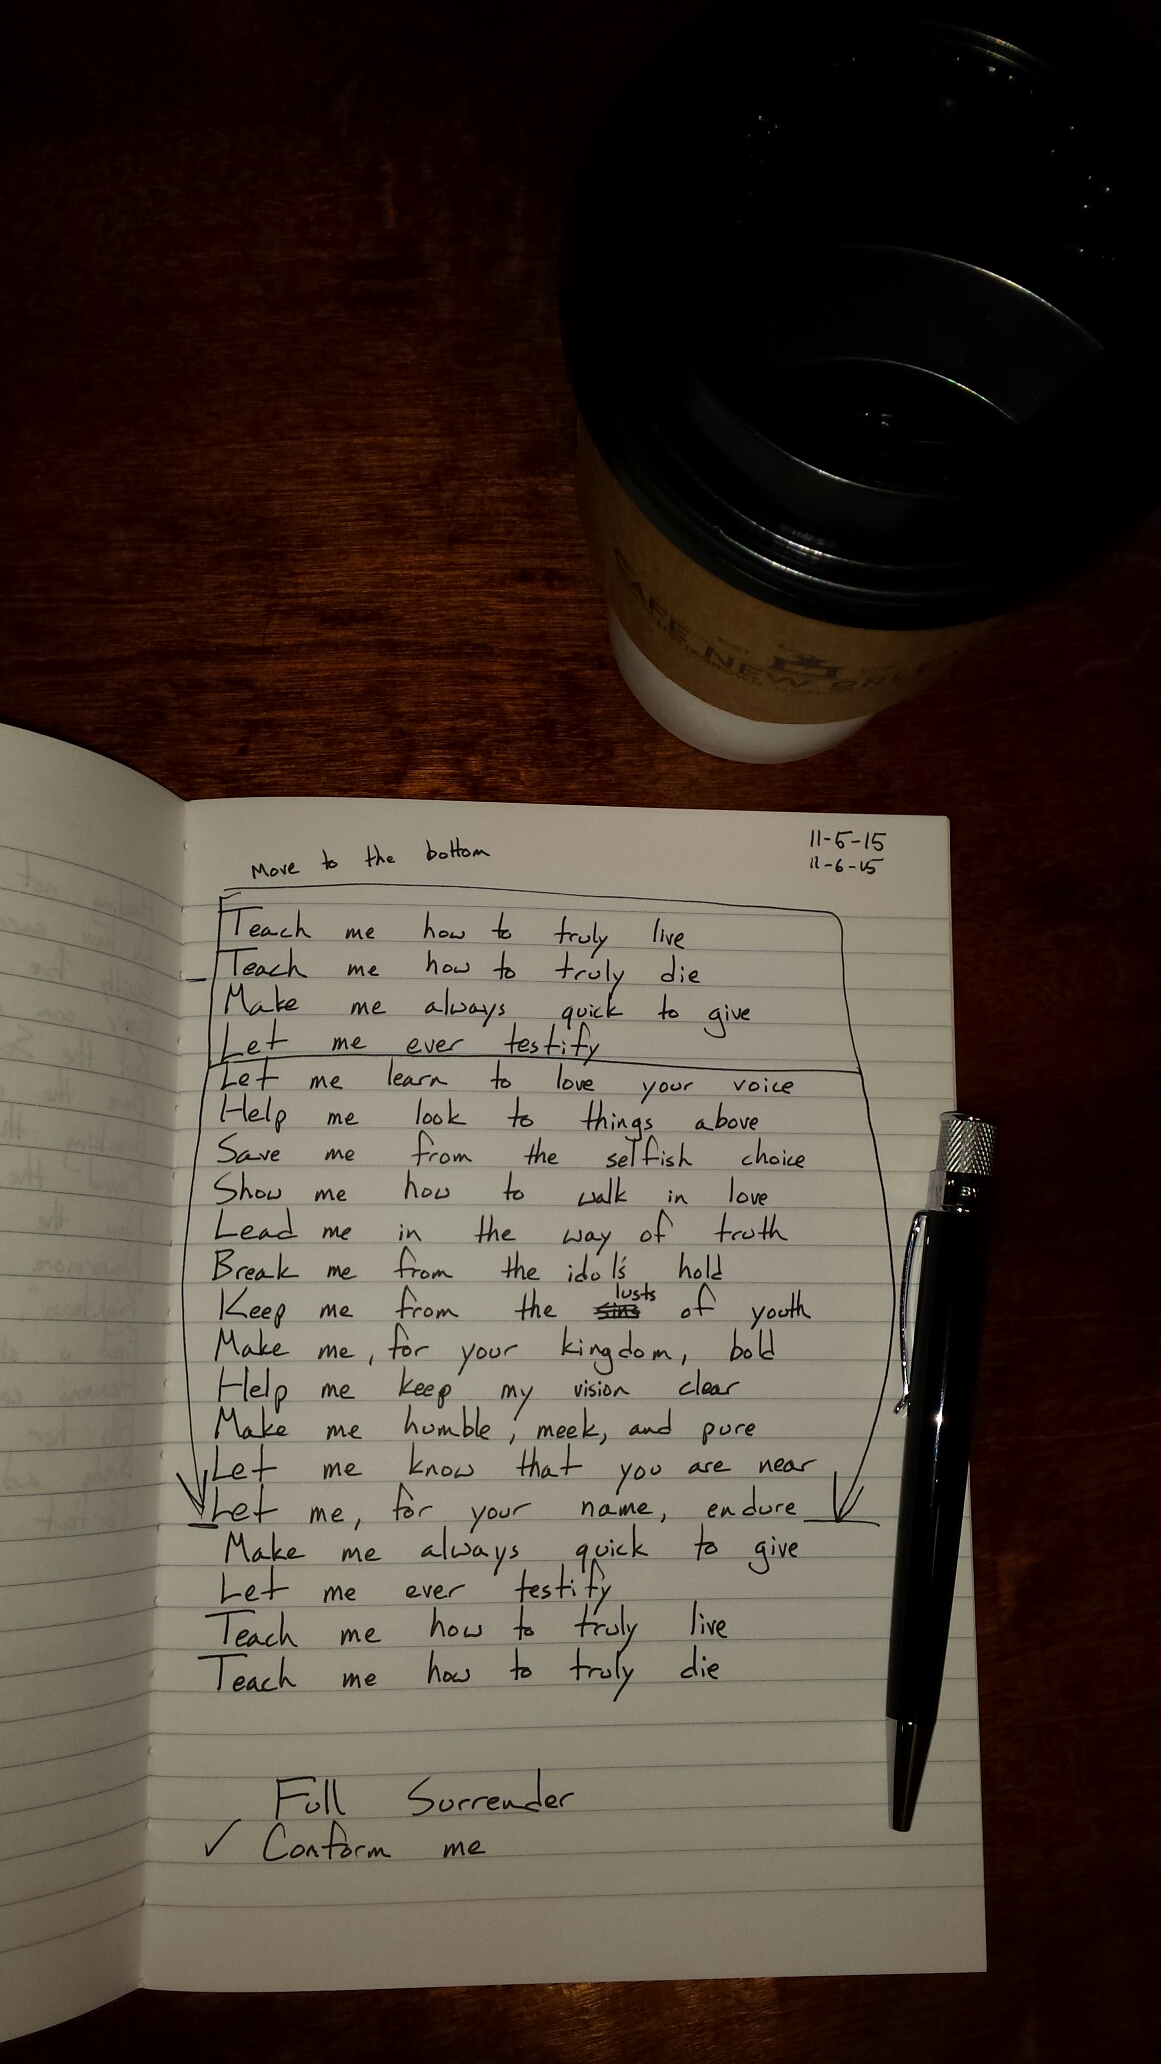 CAFE
NEW
Move to the bottom
11-5-15
11-6-15
Teach me how to truly live
Teach me how to truly die
Make me always quick to give
Let me ever testify
Let me learn to love your voice
Help me look to things above
Save me from the selfish choice
Show me how to walk in love
Lead me in the way of truth
Break me from the idol's hold
Keep me from the sins lusts of youth
Make me, for your kingdom, bold
Help me keep my vision clear
Make me humble, meek, and pure
Let me know that you are near
Let me, for your name, endure
Make me always quick to give
Let me ever testify
Teach me how to truly live
Teach me how to truly die
Full Surrender
✓ Conform me